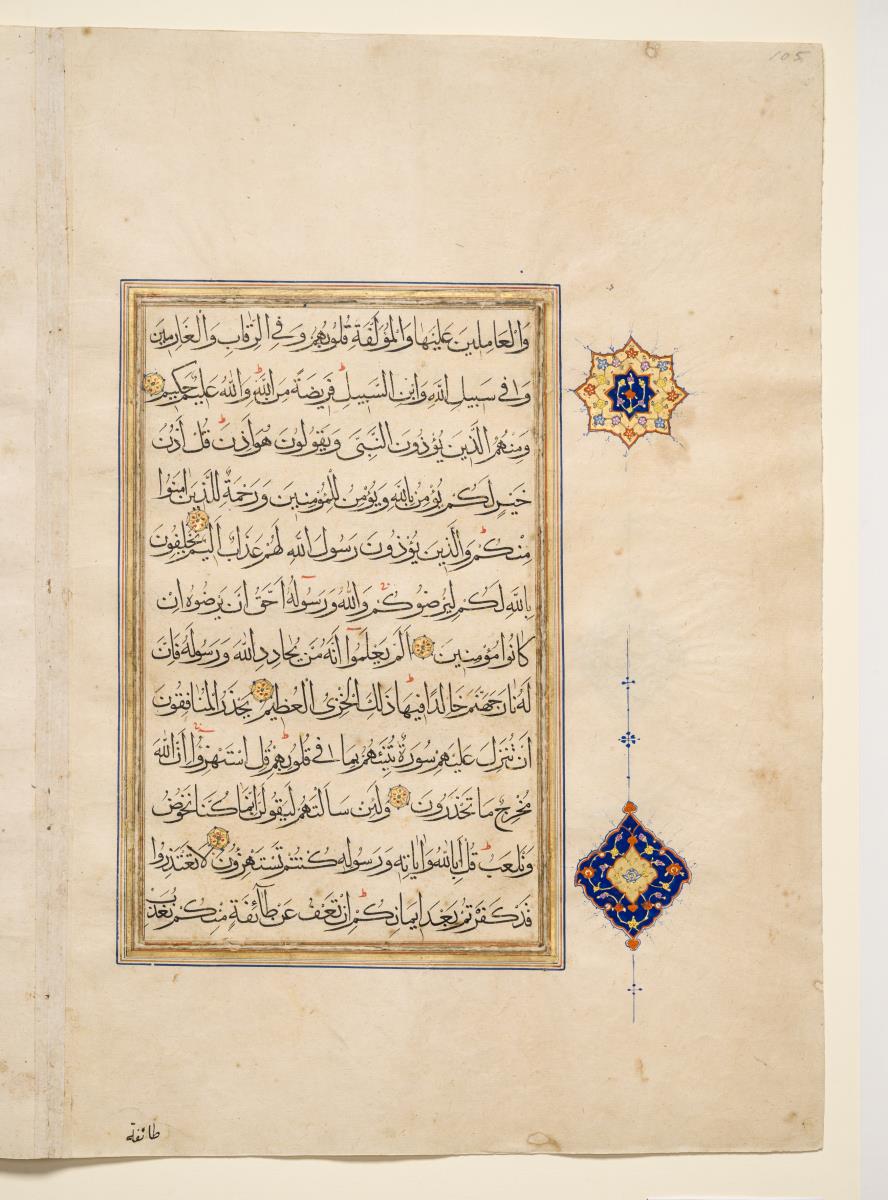 105
وَالْعَامِلِينَ عَلَيْهَا وَالْمُؤَلَّفَةِ قُلُوبُهُمْ وَفِي الرِّقَابِ وَالْغَارِمِينَ
وَفِي سَبِيلِ اللَّهِ وَابْنِ السَّبِيلِ فَرِيضَةً مِنَ اللَّهِ وَاللَّهُ عَلِيمٌ حَكِيمٌ
وَمِنْهُمُ الَّذِينَ يُؤْذُونَ النَّبِيَّ وَيَقُولُونَ هُوَ أُذُنٌ قُلْ أُذُنُ
خَيْرٍ لَكُمْ يُؤْمِنُ بِاللَّهِ وَيُؤْمِنُ لِلْمُؤْمِنِينَ وَرَحْمَةٌ لِلَّذِينَ آمَنُوا
مِنْكُمْ وَالَّذِينَ يُؤْذُونَ رَسُولَ اللَّهِ لَهُمْ عَذَابٌ أَلِيمٌ يَحْلِفُونَ
بِاللَّهِ لَكُمْ لِيُرْضُوكُمْ وَاللَّهُ وَرَسُولُهُ أَحَقُّ أَنْ يُرْضُوهُ إِنْ
كَانُوا مُؤْمِنِينَ أَلَمْ يَعْلَمُوا أَنَّهُ مَنْ يُحَادِدِ اللَّهَ وَرَسُولَهُ فَأَنَّ
لَهُ نَارَ جَهَنَّمَ خَالِدًا فِيهَا ذَلِكَ الْخِزْيُ الْعَظِيمُ يَحْذَرُ الْمُنَافِقُونَ
أَنْ تُنَزَّلَ عَلَيْهِمْ سُورَةٌ تُنَبِّئُهُمْ بِمَا فِي قُلُوبِهِمْ قُلِ اسْتَهْزِئُوا إِنَّ اللَّهَ
مُخْرِجٌ مَا تَحْذَرُونَ وَلَئِنْ سَأَلْتَهُمْ لَيَقُولُنَّ إِنَّمَا كُنَّا نَخُوضُ
وَنَلْعَبُ قُلْ أَبِاللَّهِ وَآيَاتِهِ وَرَسُولِهِ كُنْتُمْ تَسْتَهْزِئُونَ لَا تَعْتَذِرُوا
قَدْ كَفَرْتُمْ بَعْدَ إِيمَانِكُمْ إِنْ نَعْفُ عَنْ طَائِفَةٍ مِنْكُمْ نُعَذِّبْ
طائفة